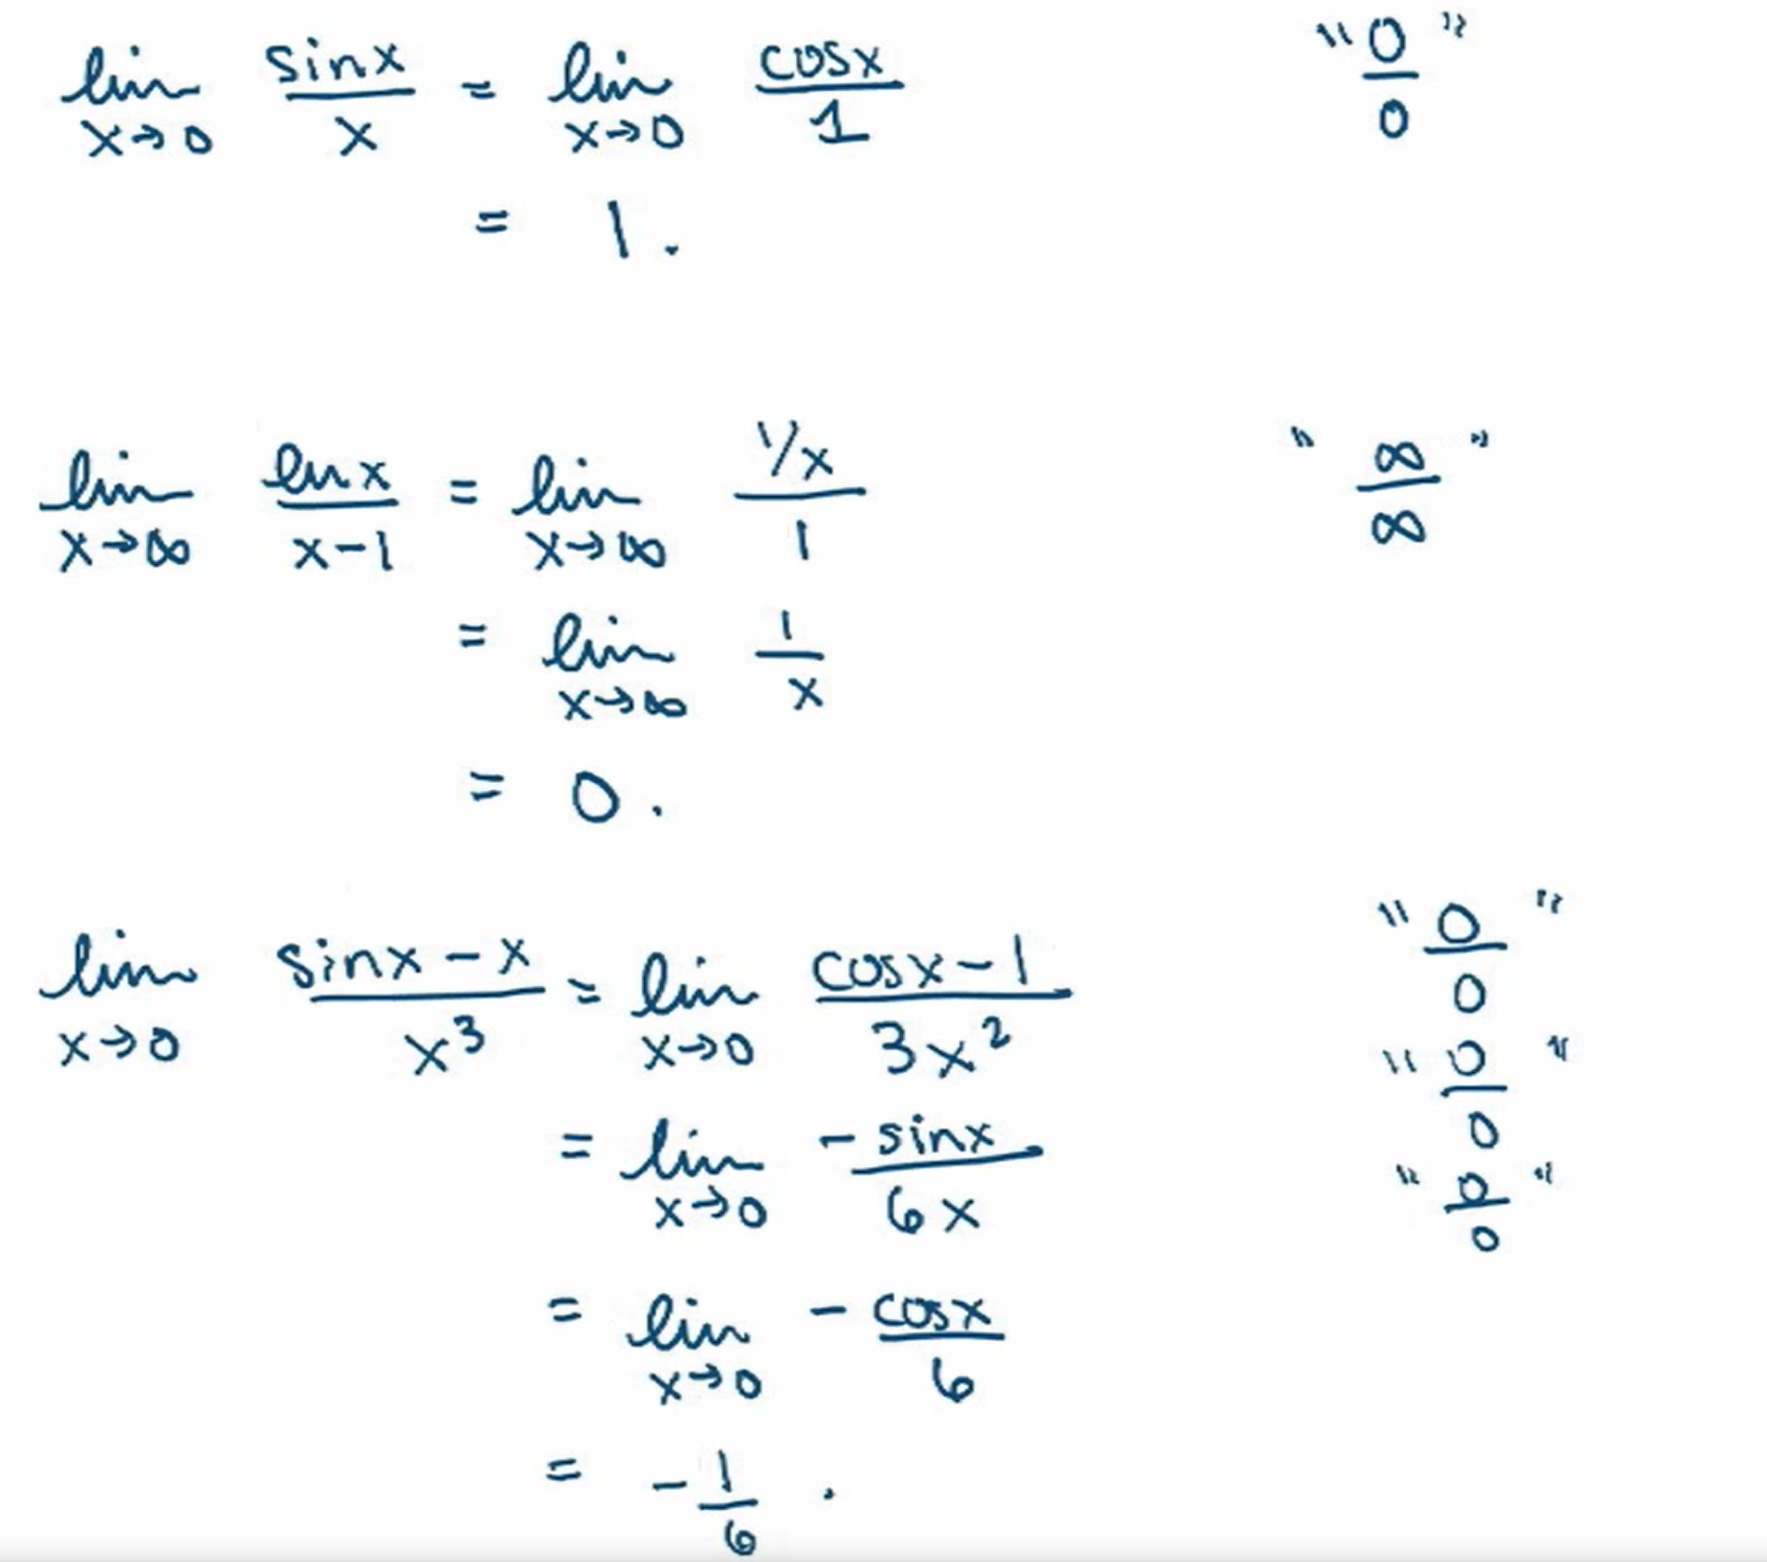 lim x→0 sinx/x = lim x→0 cosx/1 "0/0"
= 1.
lim x→∞ lnx/x-1 = lim x→∞ 1/x/1 "∞/∞"
= lim x→∞ 1/x
= 0.
lim x→0 sinx-x/x³ = lim x→0 cosx-1/3x² "0/0"
= lim x→0 -sinx/6x "0/0"
= lim x→0 -cosx/6 "0/0"
= -1/6.